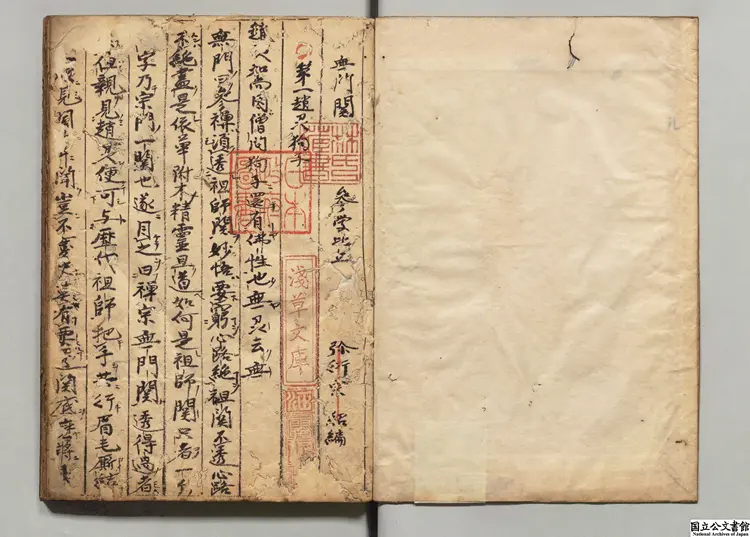 無門関 参学比丘 弥衍宗紹編
第一趙州狗子
趙州和尚因僧問狗子還有佛性也無州云無
無門曰参禅須透祖師関妙悟要窮心路絶祖関不透心路
不絶盡是依草附木精靈且道如何是祖師関只者一ケ
字乃宗門一関也遂目之曰禅宗無門関透得過者
但親見趙州便可与歴代祖師把手共行眉毛厮結
眼見同一耳聞豈不慶快莫有要透関底麼將
林氏蔵書
日本政府圖書
淺草文庫
国立公文書館
National Archives of Japan